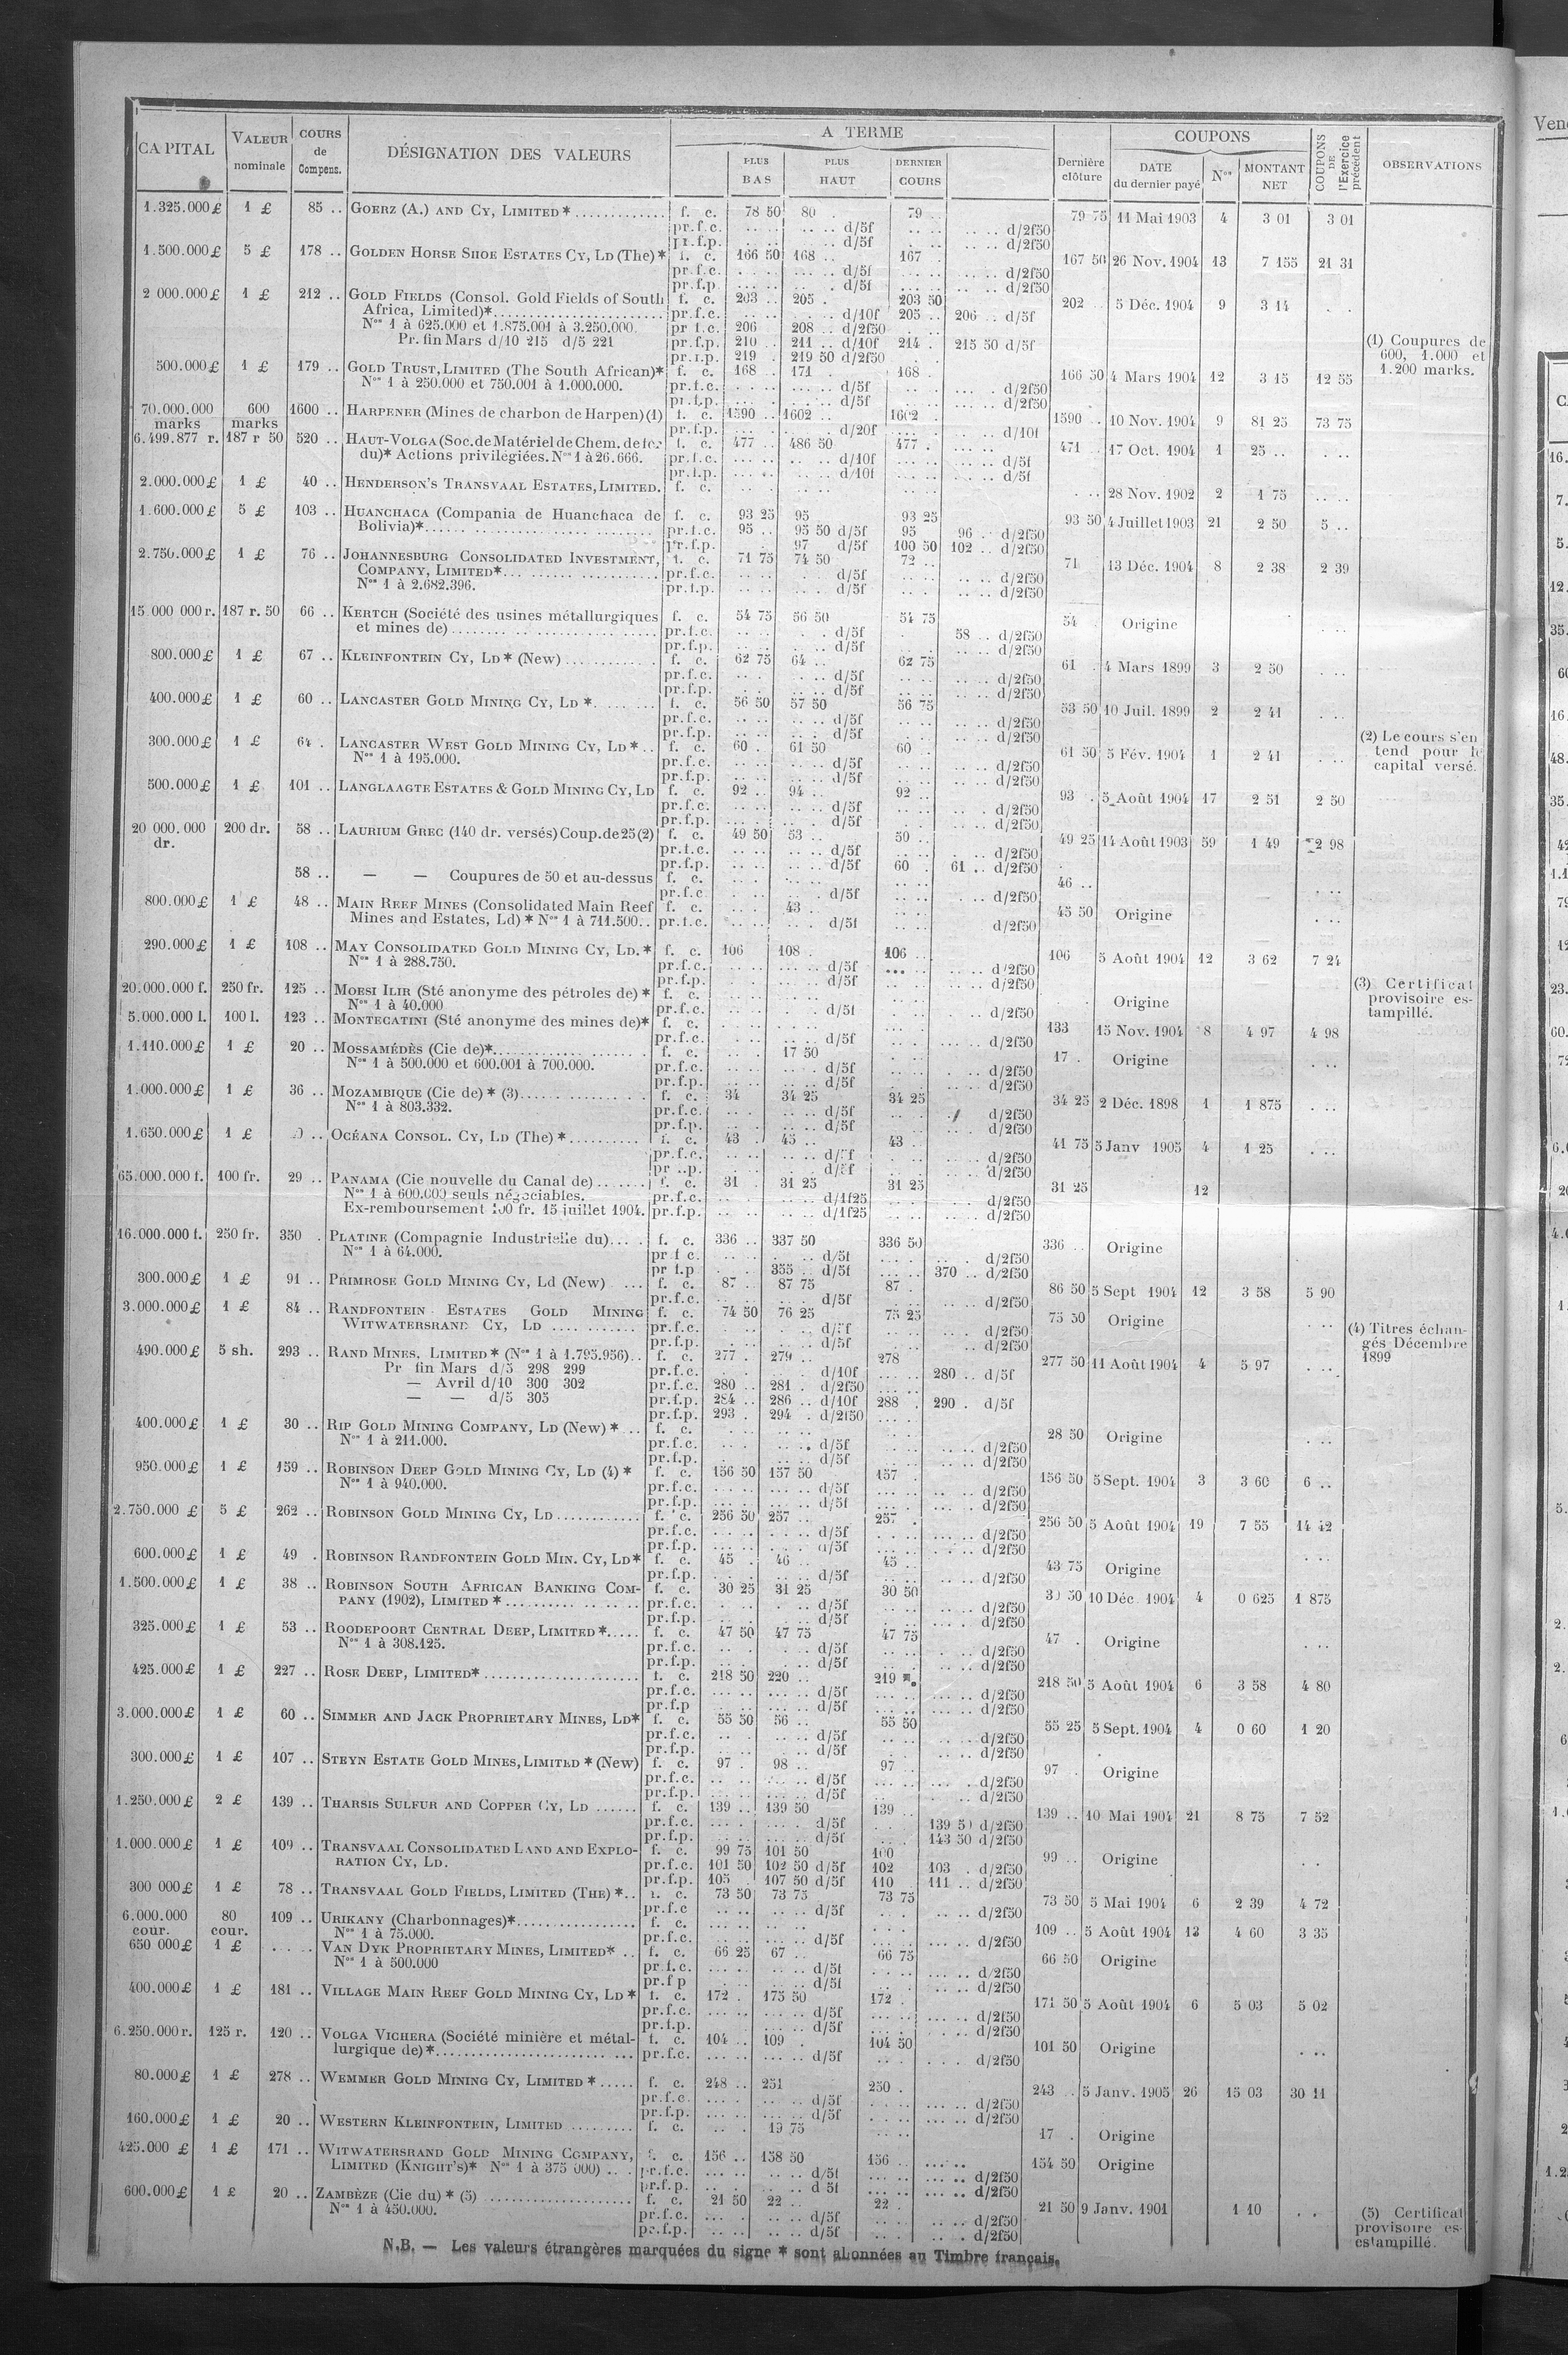 CAPITAL VALEUR nominale COURS de Compens. DÉSIGNATION DES VALEURS A TERME PLUS BAS PLUS HAUT DERNIER COURS Dernière clôture COUPONS DATE du dernier payé Nos MONTANT NET COUPONS DE l'Exercice précédent OBSERVATIONS
1.325.000 £ 1 £ 85 .. GOERZ (A.) AND CY, LIMITED * f. c. 78 50 80 . 79 .. 79 75 11 Mai 1903 4 3 01 3 01
pr.f.c. d/5f d/2f50
pr.f.p. d/5f d/2f50
1.500.000 £ 5 £ 178 .. GOLDEN HORSE SHOE ESTATES CY, LD (The) * f. c. 166 50 168 .. 167 . 167 50 26 Nov. 1904 13 7 155 21 31
pr.f.c. d/5f d/2f50
pr.f.p d/5f d/2f50
2 000.000 £ 1 £ 212 .. GOLD FIELDS (Consol. Gold Fields of South f. c. 203 .. 205 . 203 50 202 .. 5 Déc. 1904 9 3 14
Africa, Limited)* pr.f.c. d/10f 205 .. 206 .. d/5f
Nos 1 à 625.000 et 1.875.001 à 3.250.000. pr f.c. 206 208 .. d/2f50
Pr. fin Mars d/10 215 d/5 221 pr.f.p. 210 .. 211 .. d/10f 214 . 215 50 d/5f
pr.f.p. 219 . 219 50 d/2f50
(1) Coupures de
600, 1.000 et
1.200 marks.
500.000 £ 1 £ 179 .. GOLD TRUST, LIMITED (The South African)* f. c. 168 . 171 . 168 . 166 50 4 Mars 1904 12 3 15 12 55
Nos 1 à 250.000 et 750.001 à 1.000.000. pr.f.c. d/5f d/2f50
pr.f.p. d/5f d/2f50
70.000.000 600 1600 .. HARPENER (Mines de charbon de Harpen) (1) f. c. 1590 .. 1602 .. 1602 . 1590 .. 10 Nov. 1904 9 81 25 73 75
marks marks pr.f.p. d/20f d/10f
6.499.877 r. 187 r 50 520 .. HAUT-VOLGA (Soc. de Matériel de Chem. de fer f. c. 477 .. 486 50 477 . 471 .. 17 Oct. 1904 1 25 ..
du)* Actions privilégiées. Nos 1 à 26.666. pr.f.c. d/10f d/5f
pr.f.p. d/10f d/5f
2.000.000 £ 1 £ 40 .. HENDERSON'S TRANSVAAL ESTATES, LIMITED. f. c. 28 Nov. 1902 2 1 75
1.600.000 £ 5 £ 103 .. HUANCHACA (Compania de Huanchaca de f. c. 93 25 95 93 25 93 50 4 Juillet 1903 21 2 50 5 ..
Bolivia)* pr.f.c. 95 .. 95 50 d/5f 95 96 . d/2f50
pr.f.p. 97 d/5f 100 50 102 .. d/2f50
2.750.000 £ 1 £ 76 .. JOHANNESBURG CONSOLIDATED INVESTMENT, f. c. 71 75 74 50 72 .. 71 13 Déc. 1904 8 2 38 2 39
COMPANY, LIMITED* pr.f.c. d/5f d/2f50
Nos 1 à 2.682.396. pr.f.p. d/5f d/2f50
15.000 000 r. 187 r. 50 66 .. KERTCH (Société des usines métallurgiques f. c. 54 75 56 50 54 75 54 Origine
et mines de) pr.f.c. d/5f 58 .. d/2f50
pr.f.p. d/5f d/2f50
800.000 £ 1 £ 67 .. KLEINFONTEIN CY, LD * (New) f. c. 62 75 64 .. 62 75 61 . 4 Mars 1899 3 2 50
pr.f.c. d/5f d/2f50
pr.f.p. d/5f d/2f50
400.000 £ 1 £ 60 .. LANCASTER GOLD MINING CY, LD * f. c. 56 50 57 50 56 75 53 50 10 Juil. 1899 2 2 41
pr.f.c. d/5f d/2f50
pr.f.p. d/5f d/2f50
300.000 £ 1 £ 64 . LANCASTER WEST GOLD MINING CY, LD * f. c. 60 . 61 50 60 . 61 50 5 Fév. 1904 1 2 41
Nos 1 à 195.000. pr.f.c. d/5f d/2f50
pr.f.p. d/5f d/2f50
(2) Le cours s'en
tend pour le
capital versé.
500.000 £ 1 £ 101 .. LANGLAAGTE ESTATES & GOLD MINING CY, LD f. c. 92 .. 94 .. 92 .. 93 . 5 Août 1904 17 2 51 2 50
pr.f.c. d/5f d/2f50
pr.f.p. d/5f d/2f50
20 000.000 200 dr. 58 .. LAURIUM GREC (140 dr. versés) Coup. de 25 (2) f. c. 49 50 53 .. 50 .. 49 25 14 Août 1903 59 1 49 2 98
dr. pr.f.c. d/5f d/2f50
pr.f.p. d/5f 60 . 61 .. d/2f50
58 .. — — Coupures de 50 et au-dessus f. c. 46 ..
pr.f.c d/5f d/2f50
800.000 £ 1 £ 48 .. MAIN REEF MINES (Consolidated Main Reef f. c. 43 .. 45 50 Origine
Mines and Estates, Ld) * Nos 1 à 711.500. pr.f.c. d/5f d/2f50
290.000 £ 1 £ 108 .. MAY CONSOLIDATED GOLD MINING CY, LD. * f. c. 106 108 . 106 .. 106 5 Août 1904 12 3 62 7 24
Nos 1 à 288.750. pr.f.c. d/5f d/2f50
pr.f.p. d/5f d/2f50
20.000.000 f. 250 fr. 125 .. MOESI ILIR (Sté anonyme des pétroles de) * f. c. Origine
Nos 1 à 40.000 pr.f.c. d/5f d/2f50
(3) Certificat
provisoire es-
tampillé.
5.000.000 l. 100 l. 123 .. MONTECATINI (Sté anonyme des mines de)* f. c. 133 15 Nov. 1904 8 4 97 4 98
pr.f.c. d/5f d/2f50
1.110.000 £ 1 £ 20 .. MOSSAMÉDÈS (Cie de)* f. c. 17 50 17 . Origine
Nos 1 à 500.000 et 600.001 à 700.000. pr.f.c. d/5f d/2f50
pr.f.p. d/5f d/2f50
1.000.000 £ 1 £ 36 .. MOZAMBIQUE (Cie de) * (3) f. c. 34 34 25 34 25 34 25 2 Déc. 1898 1 1 875
Nos 1 à 803.332. pr.f.c. d/5f d/2f50
pr.f.p. d/5f d/2f50
1.650.000 £ 1 £ OCÉANA CONSOL. CY, LD (The) * f. c. 43 . 45 .. 43 . 41 75 5 Janv 1905 4 1 25
pr.f.c. d/5f d/2f50
d/5f d/2f50
65.000.000 f. 100 fr. 29 .. PANAMA (Cie nouvelle du Canal de) f. c. 31 . 31 25 31 25 31 25 12
Nos 1 à 600.000 seuls négociables. pr.f.c. d/1f25 d/2f50
Ex-remboursement 100 fr. 15 juillet 1904. pr.f.p. d/1f25 d/2f50
16.000.000 f. 250 fr. 350 . PLATINE (Compagnie Industrielle du) f. c. 336 .. 337 50 336 50 336 .. Origine
Nos 1 à 64.000. pr f c. d/5f d/2f50
pr f.p 355 .. d/5f 370 .. d/2f50
300.000 £ 1 £ 91 .. PRIMROSE GOLD MINING CY, Ld (New) f. c. 87 . 87 75 87 . 86 50 5 Sept 1904 12 3 58 5 90
pr.f.c. d/5f d/2f50
3.000.000 £ 1 £ 84 .. RANDFONTEIN ESTATES GOLD MINING f. c. 74 50 76 25 75 25 75 50 Origine
WITWATERSRAND CY, LD pr.f.c. d/5f d/2f50
pr.f.p. d/5f d/2f50
(4) Titres échan-
gés Décembre
1899
490.000 £ 5 sh. 293 .. RAND MINES, LIMITED * (Nos 1 à 1.795.956) f. c. 277 . 279 .. 278 277 50 11 Août 1904 4 5 97
Pr fin Mars d/5 298 299 pr.f.c. d/10f 280 .. d/5f
— Avril d/10 300 302 pr.f.c. 280 .. 281 . d/2f50
— — d/5 305 pr.f.p. 284 .. 286 .. d/10f 288 . 290 . d/5f
pr.f.p. 293 . 294 . d/2f50
400.000 £ 1 £ 30 .. RIP GOLD MINING COMPANY, LD (New) * f. c. 28 50 Origine
Nos 1 à 211.000. pr.f.c. d/5f d/2f50
pr.f.p. d/5f d/2f50
950.000 £ 1 £ 159 .. ROBINSON DEEP GOLD MINING CY, LD (4) * f. c. 156 50 157 50 157 . 156 50 5 Sept. 1904 3 3 60 6 ..
Nos 1 à 940.000. pr.f.c. d/5f d/2f50
pr.f.p. d/5f d/2f50
2.750.000 £ 5 £ 262 .. ROBINSON GOLD MINING CY, LD f. c. 256 50 257 .. 257 . 256 50 5 Août 1904 19 7 55 14 42
pr.f.c. d/5f d/2f50
pr.f.p. d/5f d/2f50
600.000 £ 1 £ 49 . ROBINSON RANDFONTEIN GOLD MIN. CY, LD* f. c. 45 . 46 .. 45 . 43 75 Origine
pr.f.p. d/5f d/2f50
1.500.000 £ 1 £ 38 .. ROBINSON SOUTH AFRICAN BANKING COM- f. c. 30 25 31 25 30 50 30 50 10 Déc. 1904 4 0 625 1 875
PANY (1902), LIMITED * pr.f.c. d/5f d/2f50
pr.f.p. d/5f d/2f50
325.000 £ 1 £ 53 .. ROODEPOORT CENTRAL DEEP, LIMITED* f. c. 47 50 47 75 47 75 47 . Origine
Nos 1 à 308.125. pr.f.c. d/5f d/2f50
pr.f.p. d/5f d/2f50
425.000 £ 1 £ 227 .. ROSE DEEP, LIMITED* f. c. 218 50 220 .. 219 218 50 5 Août 1904 6 3 58 4 80
pr.f.c. d/5f d/2f50
pr.f.p d/5f d/2f50
3.000.000 £ 1 £ 60 .. SIMMER AND JACK PROPRIETARY MINES, LD* f. c. 55 50 56 .. 55 50 55 25 5 Sept. 1904 4 0 60 1 20
pr.f.c. d/5f d/2f50
pr.f.p. d/5f d/2f50
300.000 £ 1 £ 107 .. STEYN ESTATE GOLD MINES, LIMITED * (New) f. c. 97 . 98 .. 97 .. 97 . Origine
pr.f.c. d/5f d/2f50
pr.f.p. d/5f d/2f50
1.250.000 £ 2 £ 139 .. THARSIS SULFUR AND COPPER CY, LD f. c. 139 .. 139 50 139 .. 139 .. 10 Mai 1904 21 8 75 7 52
pr.f.c. d/5f 139 50 d/2f50
pr.f.p. d/5f 143 50 d/2f50
1.000.000 £ 1 £ 109 .. TRANSVAAL CONSOLIDATED LAND AND EXPLO- f. c. 99 75 101 50 100 99 .. Origine
RATION CY, LD. pr.f.c. 101 50 102 50 d/5f 102 103 . d/2f50
pr.f.p. 105 . 107 50 d/5f 110 111 .. d/2f50
300 000 £ 1 £ 78 .. TRANSVAAL GOLD FIELDS, LIMITED (THE) * f. c. 73 50 73 75 73 75 73 50 5 Mai 1904 6 2 39 4 72
pr.f.c d/5f d/2f50
6.000.000 80 109 .. URIKANY (Charbonnages)* f. c. 109 .. 5 Août 1904 13 4 60 3 35
cour. cour. Nos 1 à 75.000. pr.f.c. d/5f d/2f50
650 000 £ 1 £ VAN DYK PROPRIETARY MINES, LIMITED* f. c. 66 25 67 .. 66 75 66 50 Origine
Nos 1 à 500.000 pr f.c. d/5f d/2f50
pr.f p d/5f d/2f50
400.000 £ 1 £ 181 .. VILLAGE MAIN REEF GOLD MINING CY, LD * f. c. 172 . 175 50 172 . 171 50 5 Août 1904 6 5 03 5 02
pr.f.c. d/5f d/2f50
pr.f.p. d/5f d/2f50
6.250.000 r. 125 r. 120 .. VOLGA VICHERA (Société minière et métal- f. c. 104 .. 109 . 104 50 101 50 Origine
lurgique de)* pr.f.c. d/5f d/2f50
80.000 £ 1 £ 278 .. WEMMER GOLD MINING CY, LIMITED * f. c. 248 .. 251 250 . 243 . 5 Janv. 1905 26 15 03 30 11
pr.f.c. d/5f d/2f50
pr.f.p. d/5f d/2f50
160.000 £ 1 £ 20 .. WESTERN KLEINFONTEIN, LIMITED f. c. 19 75 17 . Origine
425.000 £ 1 £ 171 .. WITWATERSRAND GOLD MINING COMPANY, f. c. 156 .. 158 50 156 .. 154 50 Origine
LIMITED (KNIGHT'S)* Nos 1 à 375 000) pr.f.c. d/5f d/2f50
pr.f.p. d 5f d/2f50
600.000 £ 1 £ 20 .. ZAMBÈZE (Cie du) * (5) f. c. 21 50 22 .. 22 . 21 50 9 Janv. 1901 1 10
Nos 1 à 450.000. pr.f.c. d/5f d/2f50
pr.f.p. d/5f d/2f50
(5) Certificat
provisoire es-
estampillé.
N.B. — Les valeurs étrangères marquées du signe * sont abonnées au Timbre français.